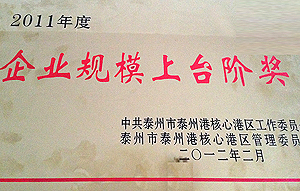 2011年度
企业规模上台阶奖
中共泰州市泰州港核心港区工作委员
泰州市泰州港核心港区管理委员
二〇一二年二月